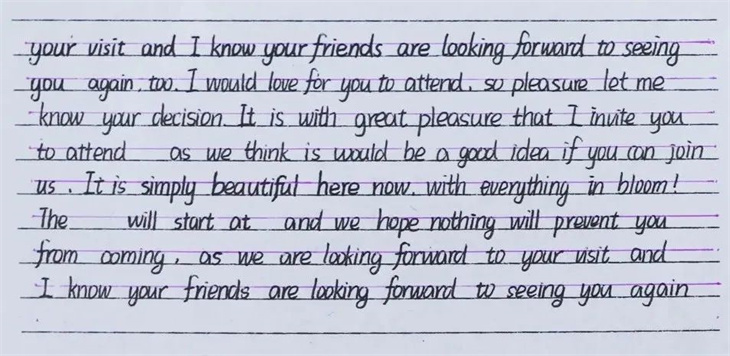 your visit and I know your friends are looking forward to seeing
you again, too. I would love for you to attend, so pleasure let me
know your decision. It is with great pleasure that I invite you
to attend as we think is would be a good idea if you can join
us. It is simply beautiful here now, with everything in bloom!
The will start at and we hope nothing will prevent you
from coming, as we are looking forward to your visit and
I know your friends are looking forward to seeing you again